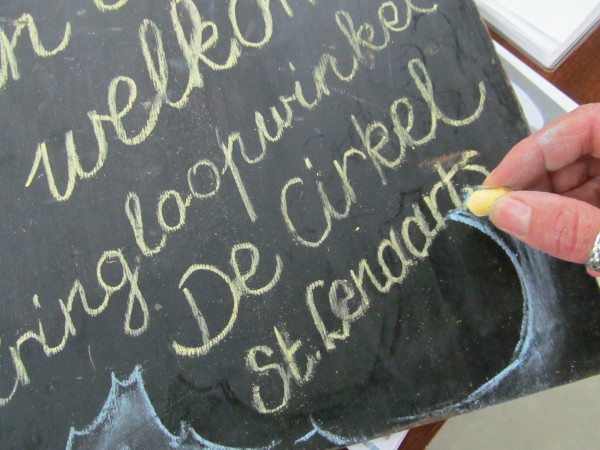 welkom
kringloopwinkel
De Cirkel
St. Lenaarts